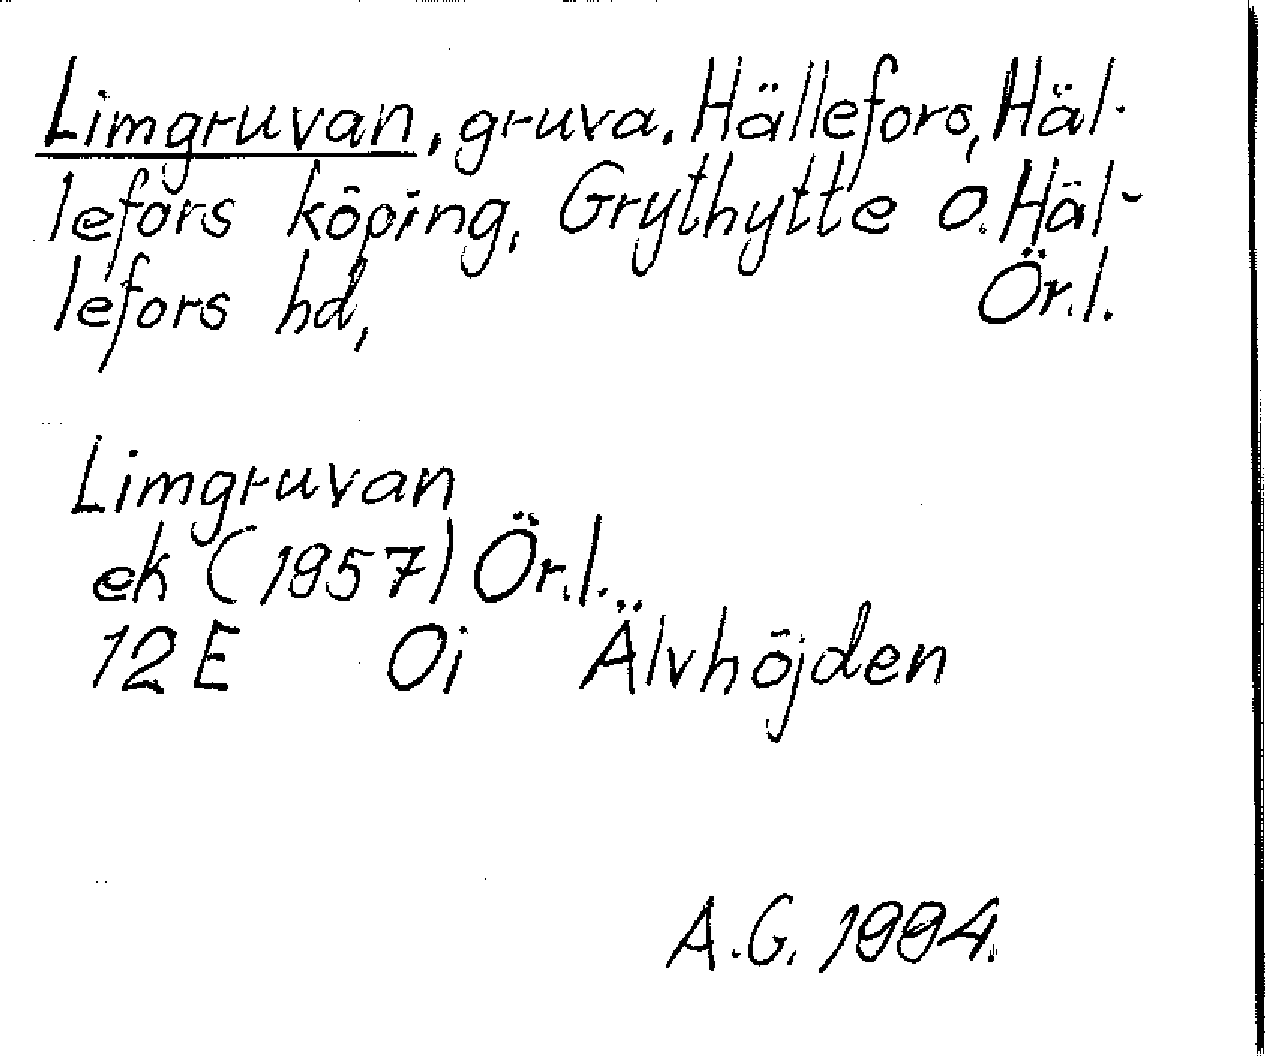 Limgruvan, gruva. Hällefors, Häl-
lefors köping, Grythytte o. Häl-
lefors hd, Ör.l.
Limgruvan
ek (1957) Ör.l.
12E 0i Älvhöjden
A.G. 1994.